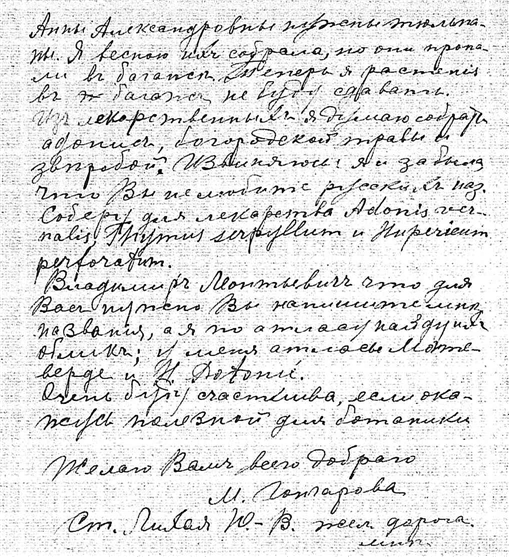 Анны Александровны нужны тюльпа-
ны. Я весною ихъ собрала, но они пропа-
ли въ багажѣ. Теперь я растенія
въ багажъ не буду сдавать.
Изъ лекарственныхъ я думаю собрать
адонисъ, богородской травы и
звѣробой. Извиняюсь! я и забыла
что Вы не любите русскихъ наз.
Соберу для лекарства Adonis ver-
nalis, Thymus serpyllum и Hypericum
perforatum.
Владимиръ Леонтьевичъ что для
Васъ нужно Вы напишите мнѣ
названія, а я по атласу найду ихъ
обликъ; у меня атласы Монте-
верде и Н.
Очень буду счастлива, если ока-
жусь полезной для ботаники
Желаю Вамъ всего добраго
М. Гончарова
Ст. Лихая Ю.-В. жел. дорога.